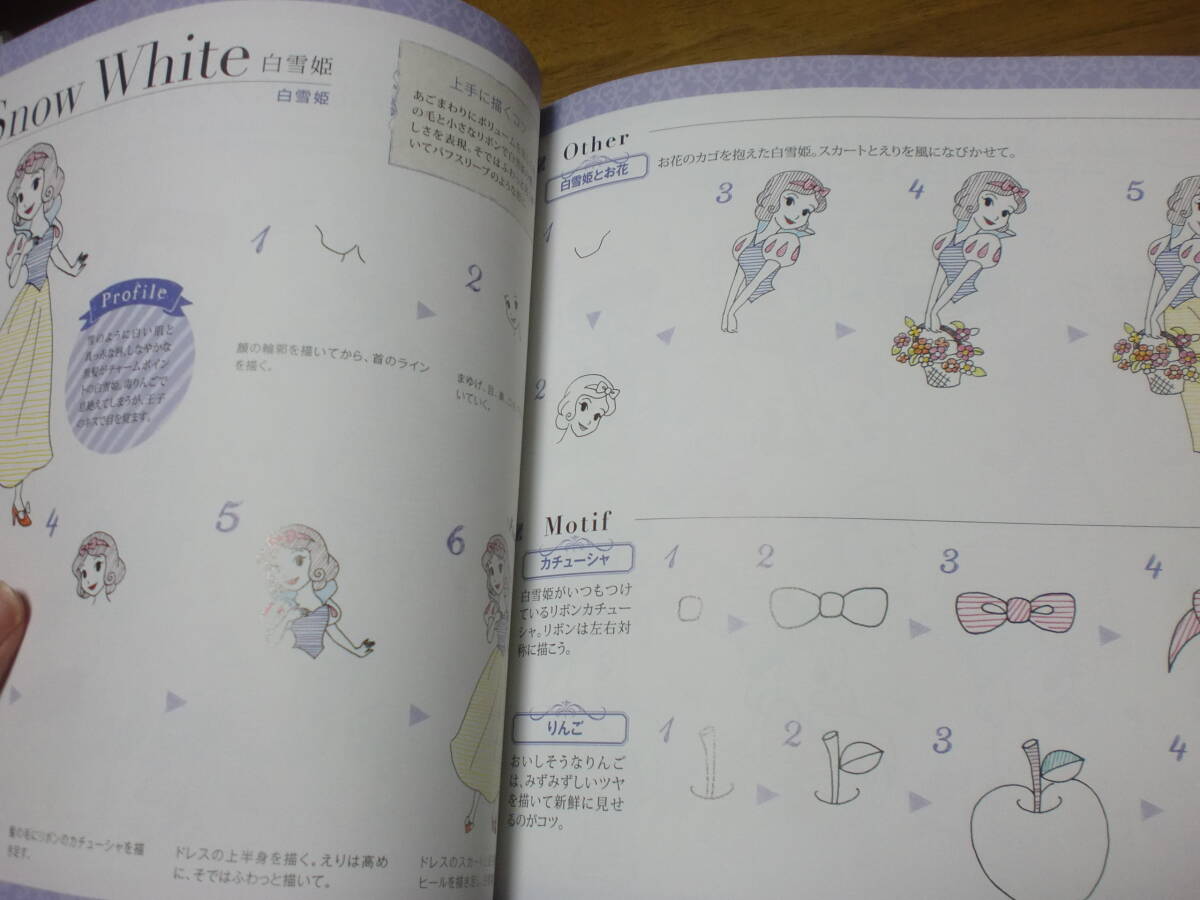 Snow White 白雪姫
白雪姫
上手に描くコツ
あごまわりにボリュームを
の毛と小さなリボンで白雪姫
しさを表現。そではふわっと
いてパフスリーブのような
Profile
雪のように白い肌と
真っ赤な唇、しなやかな
黒髪がチャームポイン
トの白雪姫。毒りんごで
息絶えてしまうが、王子
のキスで目を覚ます。
1
顔の輪郭を描いてから、首のライン
を描く。
2
まゆげ、目、鼻、口
いていく。
4
髪の毛にリボンのカチューシャを描
き足す。
5
ドレスの上半身を描く。えりは高め
に、そではふわっと描いて。
6
ドレスのスカー
ヒールを描き足し
Other
白雪姫とお花
お花のカゴを抱えた白雪姫。スカートとえりを風になびかせて。
1
2
3
4
5
Motif
カチューシャ
白雪姫がいつもつけ
ているリボンカチュー
シャ。リボンは左右対
称に描こう。
1
2
3
4
りんご
おいしそうなりんご
は、みずみずしいツヤ
を描いて新鮮に見せ
るのがコツ。
1
2
3
4